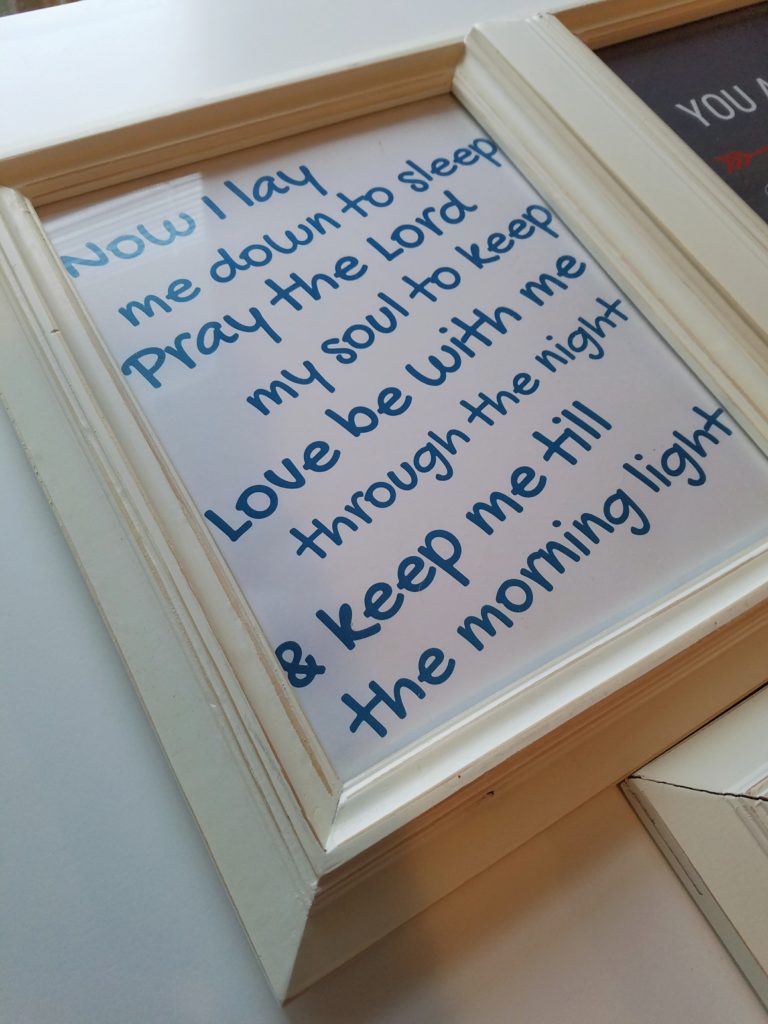 Now I lay
me down to sleep
Pray the Lord
my soul to keep
Love be with me
through the night
& keep me till
the morning light
YOU